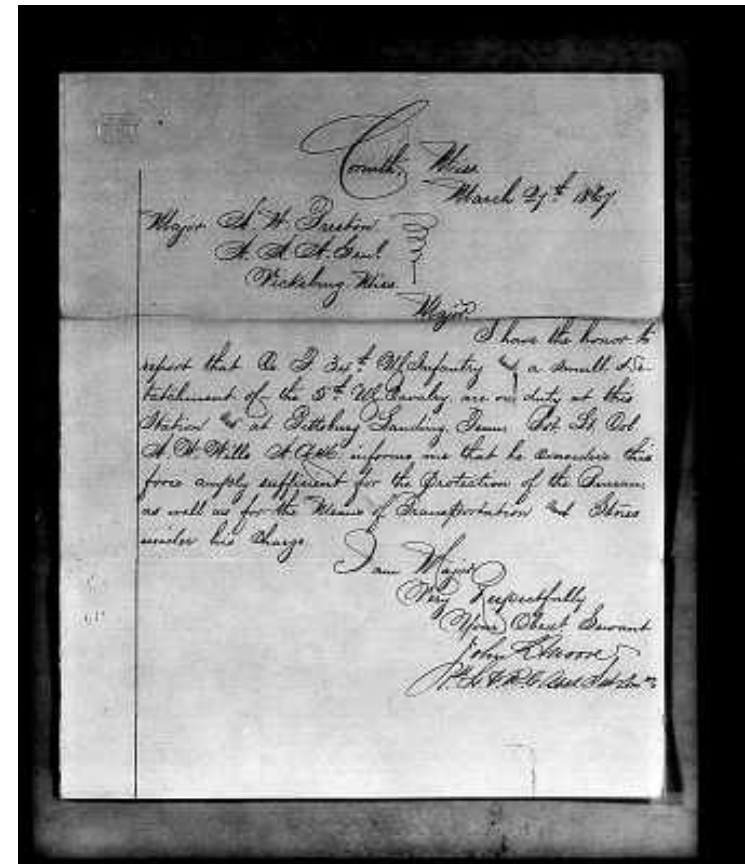 Corinth, Miss
March 27th 1867
Major A. W. Preston
A. A. A. Genl.
Vicksburg Miss.
Major
I have the honor to
report that Co 34th Infantry and a small De-
tatchment of the 5th Cavalry, are on duty at this
Station and at Pittsburg Landing, Tenn. Bvt Lt Col
A. W. Wills informs me that he considers this
force amply sufficient for the Protection of the Bureau
as well as for the Means of Transportation and Stores
under his Charge
I am Major
Very Respectfully
Your Obedt Servant
John